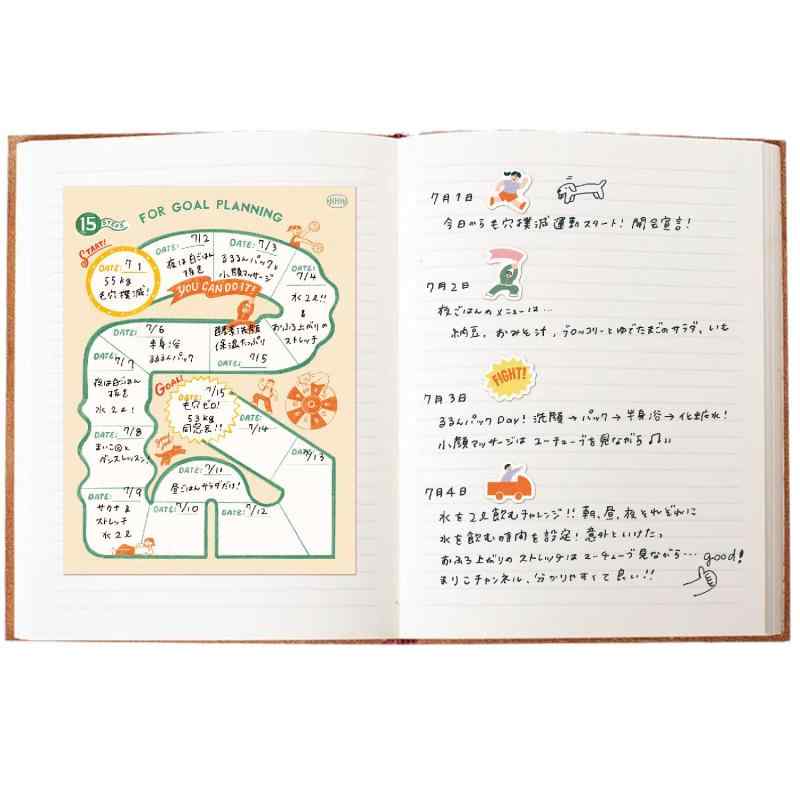 15 STEPS
FOR GOAL PLANNING
START!
DATE: 7/1
55kg
毛穴撲滅!
DATE: 7/2
夜は白ごはん
抜き
DATE: 7/3
るるんパックと
小顔マッサージ
DATE: 7/4
水2ℓ!!
&
おふろ上がりの
ストレッチ
YOU CAN DO IT!
酵素洗顔
保湿たっぷり
DATE: 7/5
DATE: 7/6
半身浴
るるんパック
DATE: 7/7
夜は白ごはん
抜き
水2ℓ!
DATE: 7/8
まいこ図と
ダンスレッスン!
DATE: 7/9
サウナ&
ストレッチ
水2ℓ
DATE: 7/10
DATE: 7/11
昼ごはんサラダだけ!
DATE: 7/12
DATE: 7/13
DATE: 7/14
GOAL!
DATE: 7/15
毛穴ゼロ!
53kg
同窓会!!
7月1日
今日から毛穴撲滅運動スタート! 開会宣言!
7月2日
夜ごはんのメニューは…
納豆、おみそ汁、ブロッコリーとゆでたまごのサラダ、いも
FIGHT!
7月3日
るるんパックDay! 洗顔→パック→半身浴→化粧水!
小顔マッサージは ユーチューブを見ながら♫♪♪
7月4日
水を2ℓ飲むチャレンジ!! 朝、昼、夜それぞれに
水を飲む時間を設定! 意外といけたっ
おふろ上がりのストレッチはユーチューブ見ながら…
good!
まりこチャンネル、分かりやすくて良い!!